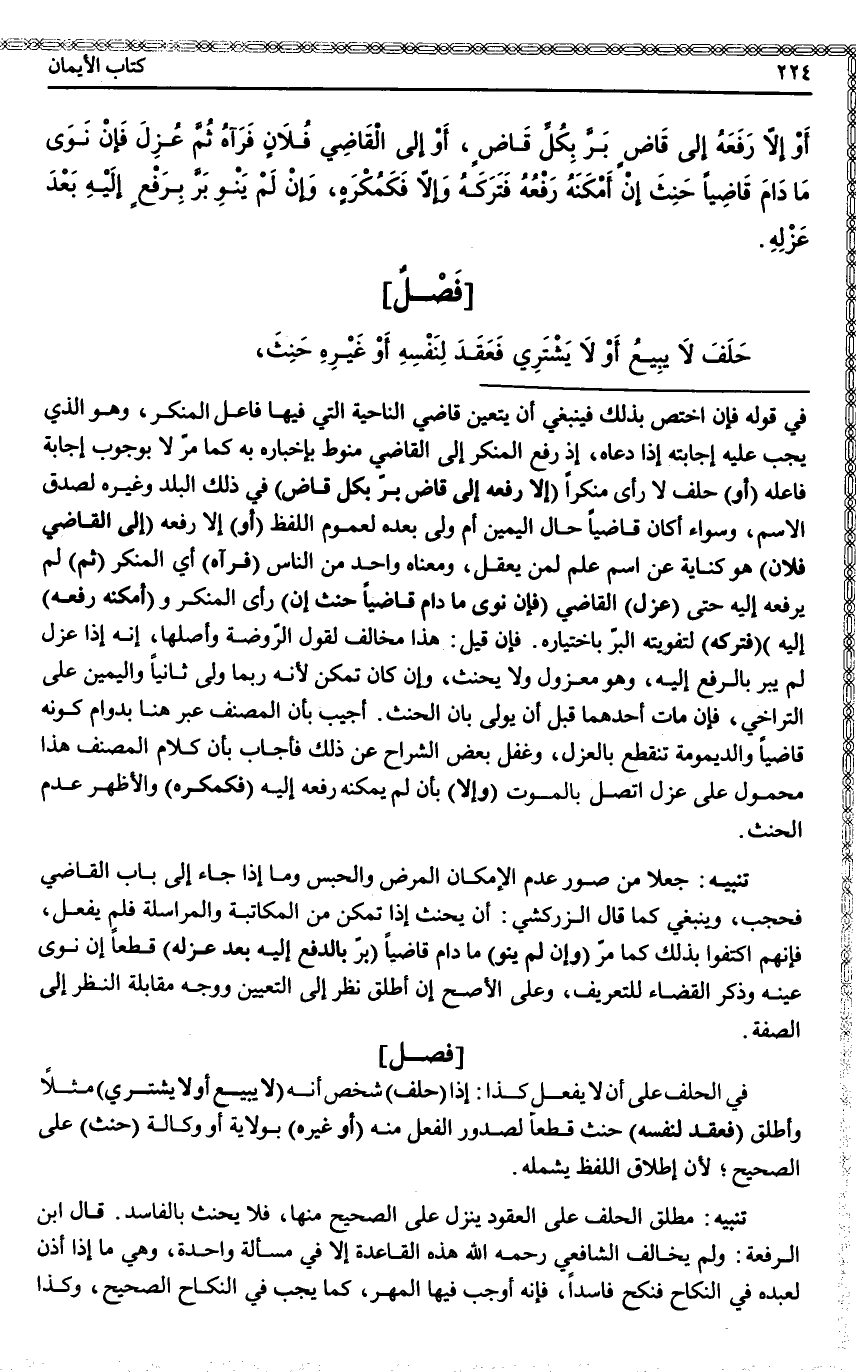 ٢٢٤ كتاب الأيمان
أَوْ إِلَّا رَفَعَهُ إلى قَاضٍ بَرَّ بِكُلِّ قَـاضٍ ، أَوْ إلى الْقَاضِي فُـلَانٍ فَرَآهُ ثُمَّ عُـزِلَ فَإِنْ نَـوَى
مَا دَامَ قَاضِياً حَنِثَ إنْ أَمْكَنَهُ رَفْعُهُ فَتَرَكَـهُ وَإِلَّا فَكَمُكْرَهٍ، وَإِنْ لَمْ يَنْـوِ بَرَّ بِـرَفْعٍ إِلَيْـهِ بَعْدَ
عَزْلِهِ .
[فَصْـلٌ]
حَلَفَ لَا يَبِيـعُ أَوْ لَا يَشْتَرِي فَعَقَـدَ لِنَفْسِهِ أَوْ غَيْـرِهِ حَنِثَ،
في قوله فإن اختص بذلك فينبغي أن يتعين قاضي الناحية التي فيهـا فاعـل المنكـر ، وهـو الذي
يجب عليه إجابته إذا دعاه، إذ رفع المنكر إلى القـاضي منوط بإخباره به كما مرّ لا بوجوب إجابة
فاعله (أو) حلف لا رأى منكراً (إلا رفعه إلى قاض بـرّ بكل قـاض) في ذلك البلد وغيـره لصدق
الاسم، وسواء أكان قـاضياً حـال اليمين أم ولى بعده لعمـوم اللفظ (أو) إلا رفعه (إلى القـاضي
فلان) هو كنـاية عن اسم علم لمن يعقـل، ومعناه واحـد من الناس (فـرآه) أي المنكر (ثم) لم
يرفعه إليه حتى (عزل) القاضي (فإن نوى ما دام قـاضياً حنث إن) رأى المنكـر و (أمكنه رفعـه)
إليه )(فتركه) لتفويته البرّ باختياره. فإن قيل: هـذا مخالف لقول الرّوضـة وأصلها، إنـه إذا عزل
لم يبر بالـرفع إليـه، وهو معـزول ولا يحنث، وإن كان تمكن لأنـه ربما ولى ثـانياً واليمين على
التراخي، فإن مات أحدهما قبل أن يولى بان الحنث. أجيب بأن المصنف عبر هنـا بدوام كـونه
قاضياً والديمومة تنقطع بالعزل، وغفل بعض الشراح عن ذلك فأجـاب بأن كـلام المصنف هذا
محمـول على عزل اتصـل بالمـوت (وإلا) بأن لم يمكنه رفعه إليـه (فكمكـره) والأظهـر عـدم
الحنث.
تنبيـه: جعلا من صـور عدم الإمكـان المرض والحبس ومـا إذا جـاء إلى بـاب القـاضي
فحجب، وينبغي كما قال الـزركشي: أن يحنث إذا تمكن من المكاتبـة والمراسلة فلم يفعـل،
فإنهم اكتفوا بذلك كما مرّ (وإن لم ينو) ما دام قـاضياً (برّ بالدفع إليـه بعد عـزله) قـطعاً إن نـوى
عينـه وذكر القضـاء للتعريف، وعلى الأصـح إن أطلق نظر إلى التعيين ووجـه مقابلة النـظر إلى
الصفة.
[فصـل]
في الحلف على أن لا يفعـل كـذا: إذا (حلف) شخص أنـه (لا يبيـع أو لا يشتـري) مثـلاً
وأطلق (فعقـد لنفسه) حنث قـطعاً لصدور الفعل منـه (أو غيره) بـولاية أو وكـالـة (حنث) على
الصحيح؛ لأن إطلاق اللفظ يشمله.
تنبيـه: مطلق الحلف على العقـود ينزل على الصحيح منهـا، فلا يحنث بالفـاسد. قـال ابن
الـرفعة: ولم يخـالف الشافعي رحمـه الله هذه القـاعدة إلا في مسـألة واحـدة، وهي ما إذا أذن
لعبده في النكاح فنكح فاسـداً، فإنه أوجب فيها المهـر، كما يجب في النكـاح الصحيح، وكـذا